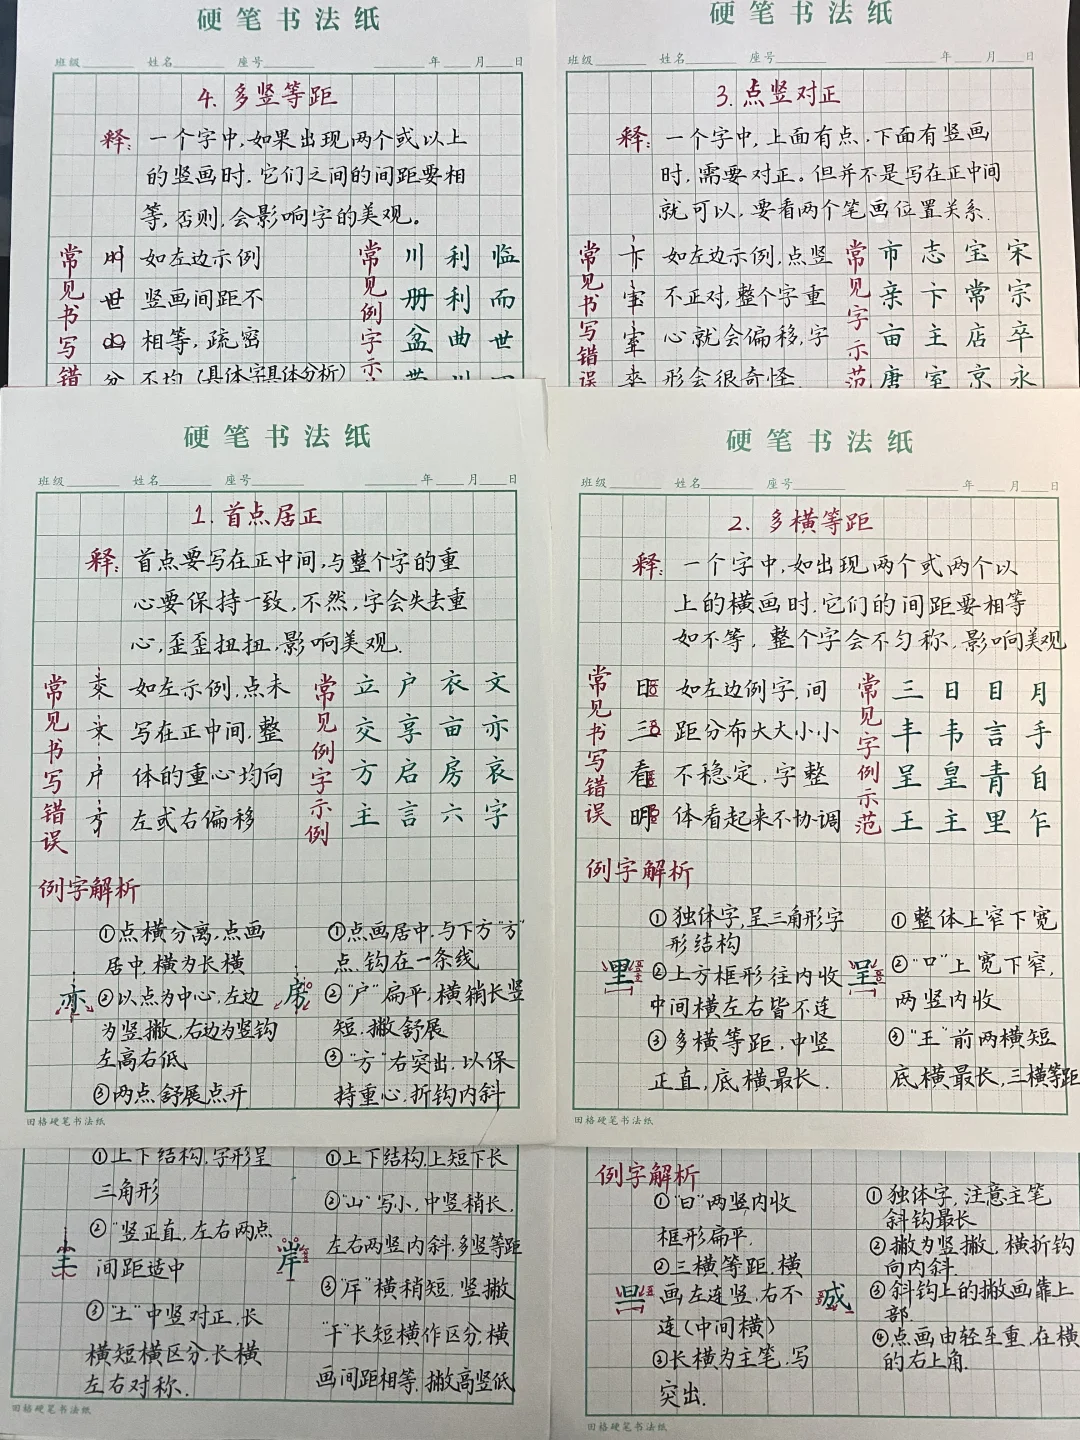 硬笔书法纸
班级 姓名 座号 年 月 日
4. 多竖等距
释: 一个字中,如果出现两个或以上
的竖画时.它们之间的间距要相
等,否则,会影响字的美观。
常见书写错
如左边示例
竖画间距不
相等,疏密
不均(具体字具体分析)
常见例字示
川 利 临
册 利 而
盆 曲 世
硬笔书法纸
班级 姓名 座号 年 月 日
3. 点竖对正
释: 一个字中,上面有点.下面有竖画
时,需要对正。但并不是写在正中间
就可以,要看两个笔画位置关系.
常见书写错误
卞
宝
牢
如左边示例,点竖
不正对,整个字重
心就会偏移,字
形会很奇怪.
常见字示范
市 志 宝 宋
亲 卞 常 宗
亩 主 店 卒
唐 室 京 永
硬笔书法纸
班级 姓名 座号 年 月 日
1. 首点居正
释: 首点要写在正中间,与整个字的重
心要保持一致.不然,字会失去重
心,歪歪扭扭,影响美观.
常见书写错误
交
文
户
方
如左示例,点未
写在正中间.整
体的重心均向
左或右偏移
常见例字示例
立 户 衣 文
交 享 亩 亦
方 启 房 哀
主 言 六 字
例字解析
亦
①点横分离,点画
居中,横为长横
②以点为中心,左边
为竖撇,右边为竖钩
左高右低
③两点舒展点开.
房
①点画居中.与下方"方"
点.钩在一条线
②"户"扁平,横稍长竖
短.撇舒展
③"方"右突出.以保
持重心.折钩内斜
田格硬笔书法纸
硬笔书法纸
班级 姓名 座号 年 月 日
2. 多横等距
释: 一个字中,如出现两个或两个以
上的横画时.它们的间距要相等
如不等,整个字会不匀称.影响美观
常见书写错误
日
三
看
明
如左边例字,间
距分布大大小小
不稳定.字整
体看起来不协调
常见字例示范
三 日 目 月
丰 韦 言 手
呈 皇 青 自
王 主 里 乍
例字解析
里
①独体字,呈三角形字
形结构
②上方框形往内收
中间横左右皆不连
③多横等距.中竖
正直,底横最长.
呈
①整体上窄下宽
②"口"上宽下窄,
两竖内收
③"王"前两横短
底横最长,三横等距
田格硬笔书法纸
①上下结构.字形呈
三角形
②"竖正直,左右两点
间距适中
③"土"中竖对正,长
横短横区分,长横
左右对称.
岸
①上下结构,上短下长
②"山"写小,中竖稍长.
左右两竖内斜.多竖等距
③"厈"横稍短.竖撇
"干"长短横作区分,横
画间距相等.撇高竖低
田格硬笔书法纸
例字解析
①"日"两竖内收
框形扁平.
②三横等距.横
画左连竖.右不
连(中间横)
③长横为主笔.写
突出.
成
①独体字,注意主笔
斜钩最长
②撇为竖撇,横折钩
向内斜.
③斜钩上的撇画靠上
部.
④点画由轻至重,在横
的右上角.
田格硬笔书法纸